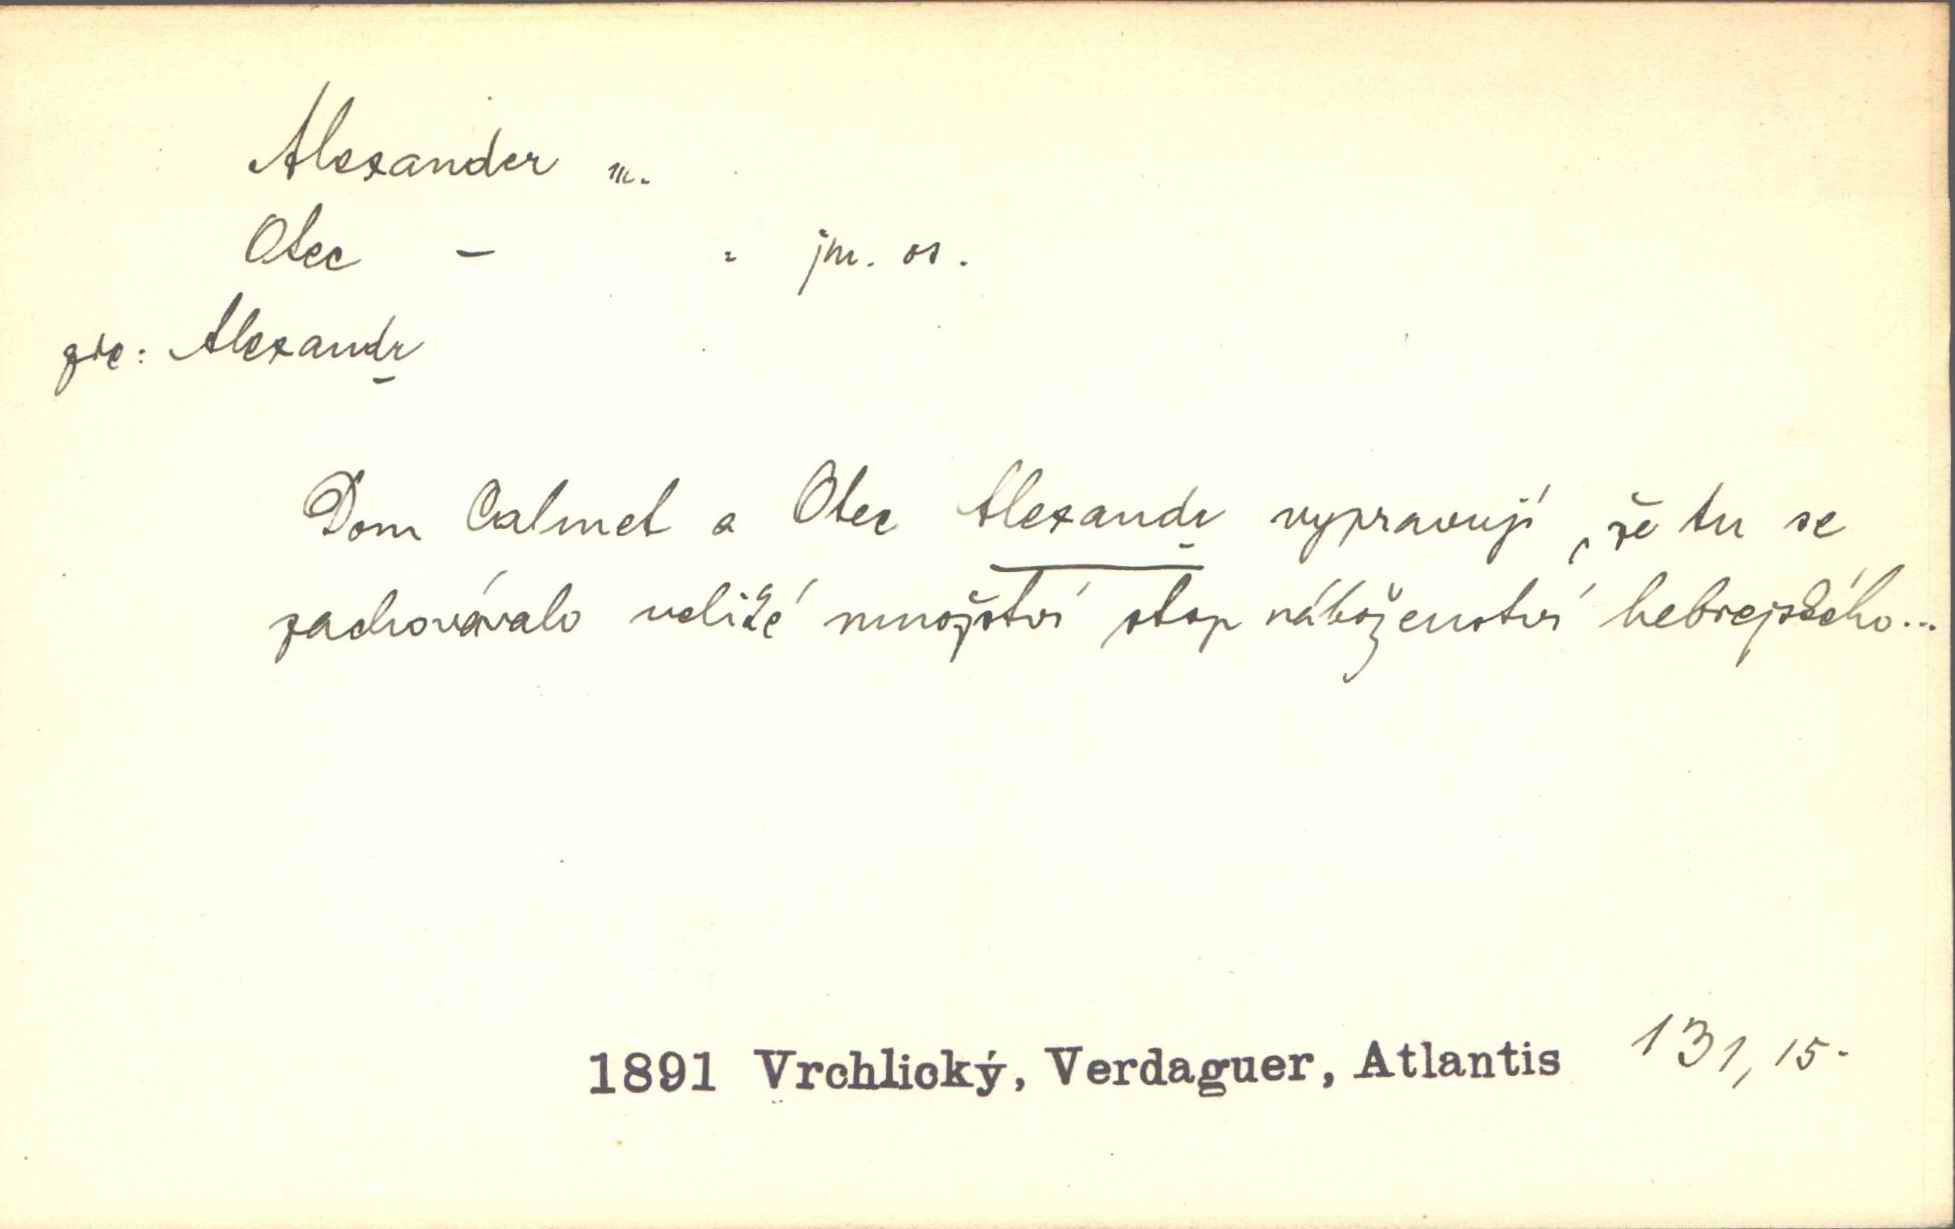 Alexander m.
Otec - = jm. os.
gre: Alexandr
Dom Calmet a Otec Alexandr vypravují, že tu se
zachovávalo veliké množství stop náboženství hebrejského...
1891 Vrchlický, Verdaguer, Atlantis 131, 15.